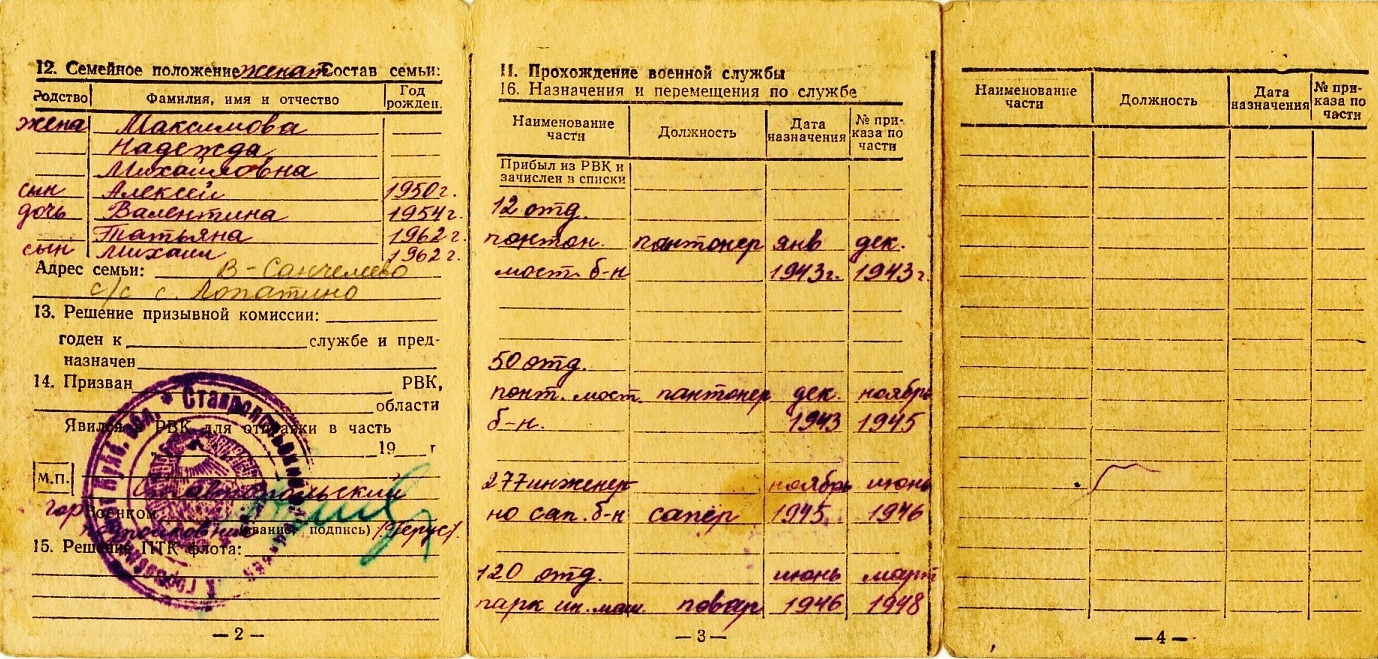 12. Семейное положение женат Состав семьи:
Родство Фамилия, имя и отчество Год рожден.
жена Максимова
Надежда
Михайловна
сын Алексей 1950 г.
дочь Валентина 1954 г.
Татьяна 1962 г.
сын Михаил 1962 г.
Адрес семьи: В-Санчелеево
с/с с. Лопатино
13. Решение призывной комиссии:
годен к службе и пред-
назначен
14. Призван РВК,
области
Явился в РВК для отправки в часть
19 г
М.П. Ставропольский
гор Военком
(звание, подпись) /Герус/
15. Решение ПТК флота:
— 2 —
II. Прохождение военной службы
16. Назначения и перемещения по службе
Наименование части Должность Дата назначения № при-каза по части
Прибыл из РВК и
зачислен в списки
12 отд.
понтон. понтонер янв дек.
мост. б-н 1943 г. 1943 г.
50 отд.
понт. мост. понтонер дек. ноябрь
б-н. 1943 1945
277 инженер ноябрь июнь
но сап. б-н сапер 1945 1946
120 отд. июнь март
парк ин. маш повар 1946 1948
— 3 —
Наименование части Должность Дата назначения № при-каза по части
— 4 —